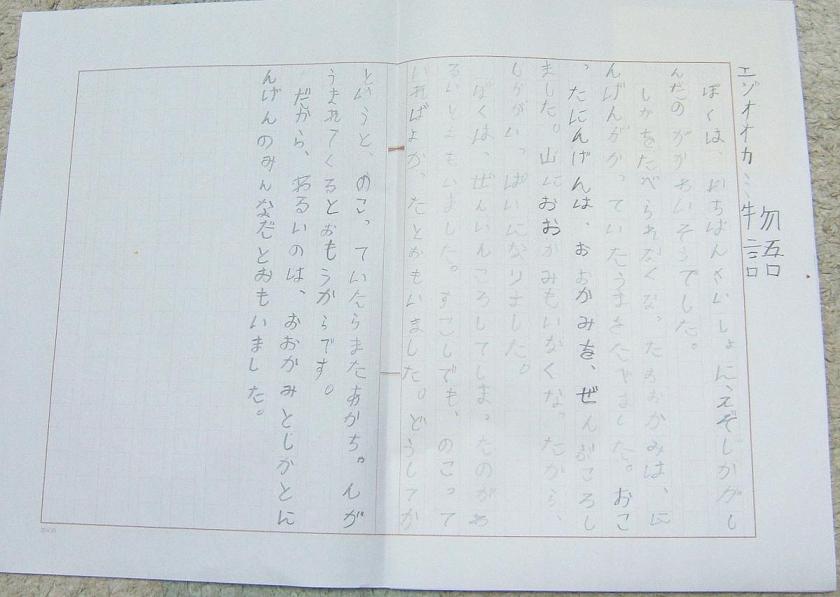 エゾオオカミ物語
ぼくは、いちばんさいしょにえぞしかがし
んだのがかわいそうでした。
しかをたべられなくなったおおかみは、に
んげんがかっていたうまをたべました。おこ
ったにんげんは、おおかみを、ぜんぶころし
ました。山におおかみもいなくなったから、
しかがいっぱいになりました。
ぼくは、ぜんいんころしてしまったのがわ
るいとおもいました。すこしでも、のこって
いればよかったとおもいました。どうしてか
というと、のこっていたらまたあかちゃんが
うまれてくるとおもうからです。
だから、わるいのは、おおかみとしかとに
んげんのみんなだとおもいました。